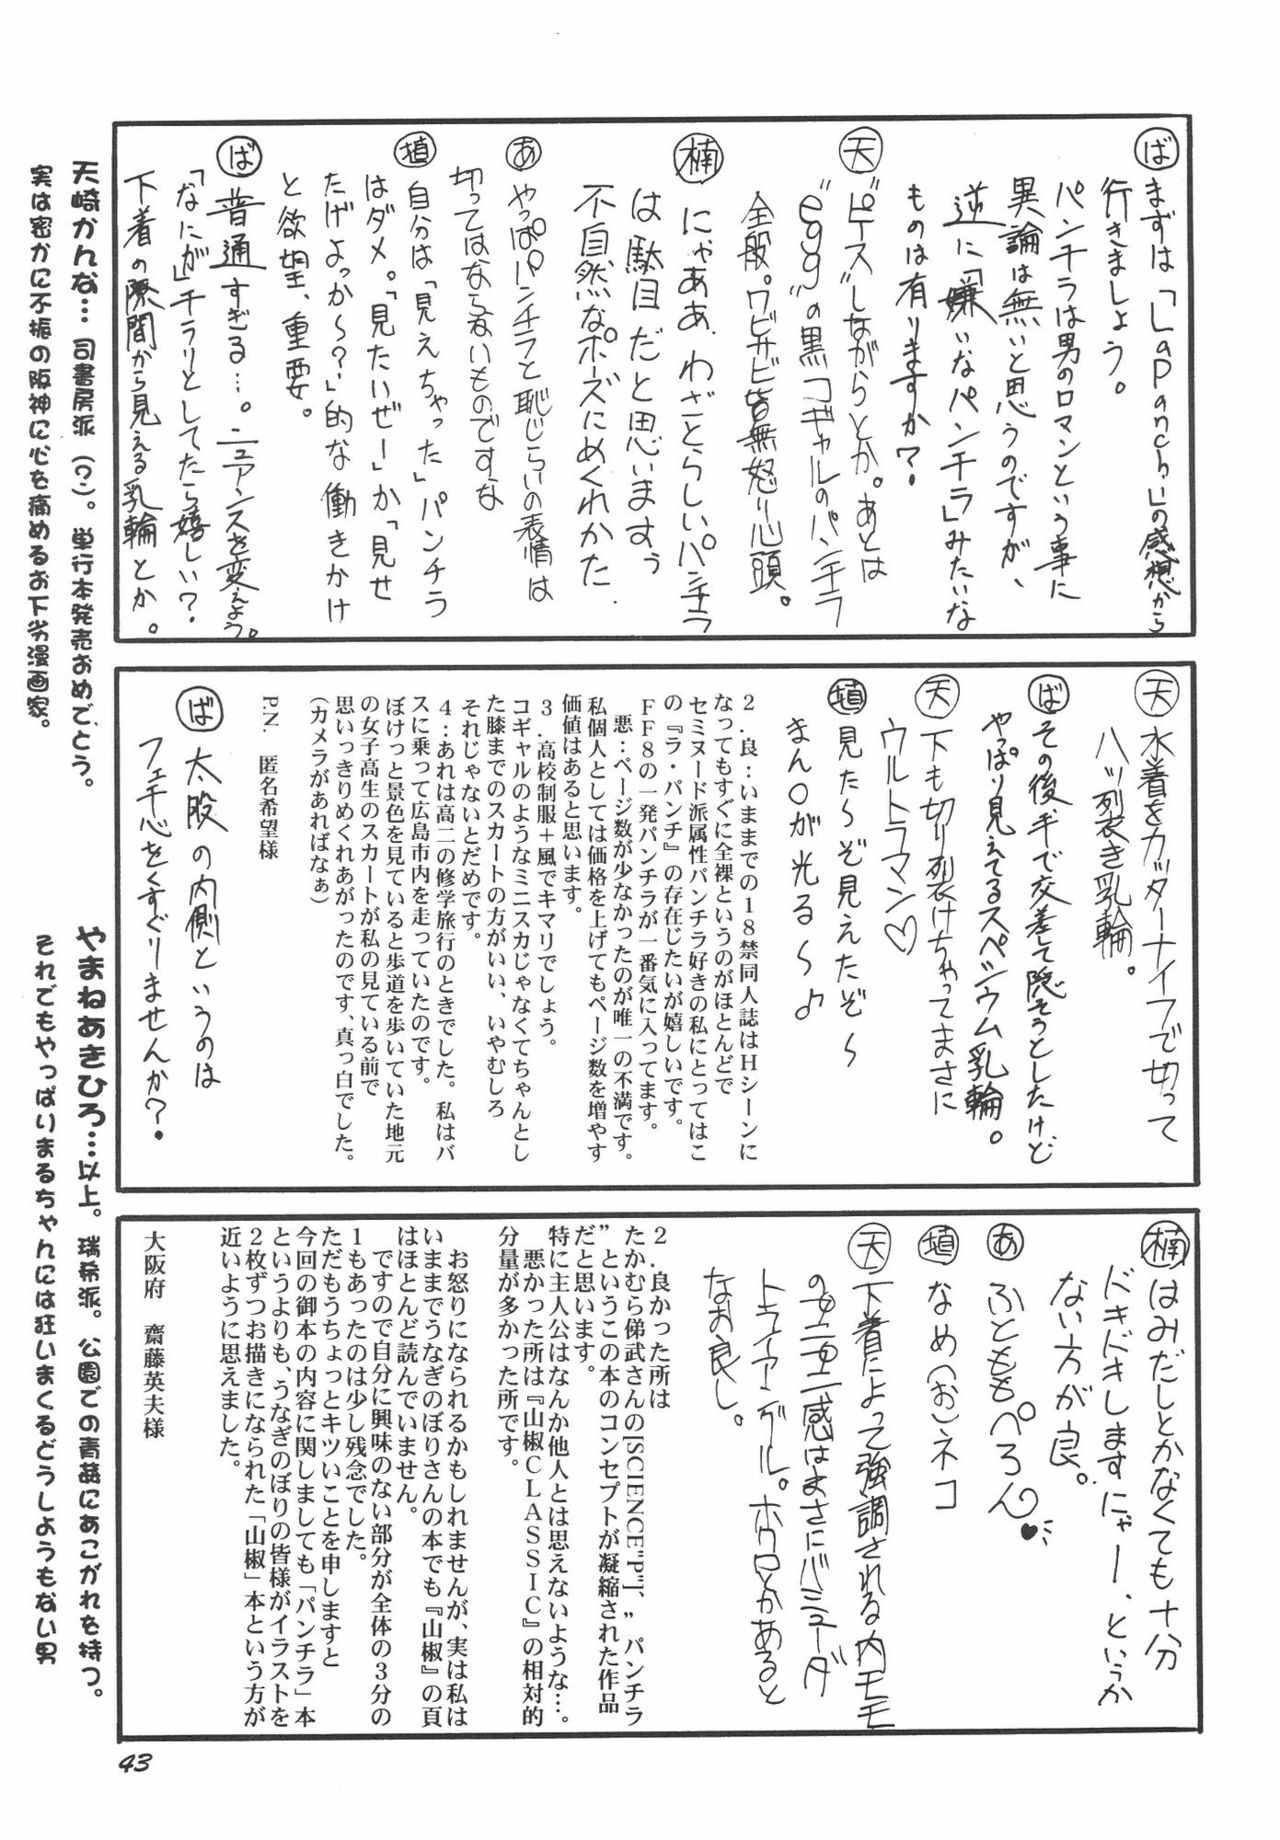 ば まずは「La Panch」の感想から
行きましょう。
パンチラは男のロマンという事に
異論は無いと思うのですが、
逆に「嫌いなパンチラ」みたいな
ものは有りますか？
天 "ピース"しながらとか。あとは
"egg"の黒コギャルのパンチラ
全般。ワビサビ皆無怒り心頭。
楠 にゃああ、わざとらしいパンチラ
は駄目だと思いますぅ
不自然なポーズにめくれかた
あ やっぱパンチラと恥じらいの表情は
切ってはならないものですな
植 自分は「見えちゃった」パンチラ
はダメ。「見たいぜー」か「見せ
たげよっか～？」的な働きかけ
と欲望、重要。
ば 普通すぎる…。ニュアンスを変えよう。
「なにが」チラリとしてたら嬉しい？
下着の隙間から見える乳輪とか。
天 水着をカッターナイフで切って
八ッ裂き乳輪。
ば その後手で交差して隠そうとしたけど
やっぱり見えてるスペシウム乳輪。
天 下も切り裂けちゃってまさに
ウルトラマン♡
植 見た～ぞ見えたぞ～
まん○が光る～♪
２．良：いままでの１８禁同人誌はＨシーンに
なってもすぐに全裸というのがほとんどで
セミヌード派属性パンチラ好きの私にとってはこ
の『ラ・パンチ』の存在じたいが嬉しいです。
ＦＦ８の一発パンチラが一番気に入ってます。
悪：ページ数が少なかったのが唯一の不満です。
私個人としては価格を上げてもページ数を増やす
価値はあると思います。
３．高校制服＋風でキマリでしょう。
コギャルのようなミニスカじゃなくてちゃんとし
た膝までのスカートの方がいい、いやむしろ
それじゃないとだめです。
４：あれは高二の修学旅行のときでした。私はバ
スに乗って広島市内を走っていたのです。
ぼけっと景色を見ていると歩道を歩いていた地元
の女子高生のスカートが私の見ている前で
思いっきりめくれあがったのです、真っ白でした。
（カメラがあればなぁ）
P.N.　匿名希望様
ば 太股の内側というのは
フェチ心をくすぐりませんか？
楠 はみだしとかなくても十分
ドキドキしますにゃー、というか
ない方が良。
あ ふとももぺろん♥
植 なめ（お）ネコ
天 下着によって強調される内モモ
の凹凸感はまさにバミューダ
トライアングル。ホクロとかあると
なお良し。
２．良かった所は
たかむら俤武さんの[SCIENCE"P"]、"パンチラ
"というこの本のコンセプトが凝縮された作品
だと思います。
特に主人公はなんか他人とは思えないような…。
悪かった所は『山椒ＣＬＡＳＳＩＣ』の相対的
分量が多かった所です。
お怒りになられるかもしれませんが、実は私は
いままでうなぎのぼりさんの本でも『山椒』の頁
はほとんど読んでいません。
ですので自分に興味のない部分が全体の３分の
１もあったのは少し残念でした。
ただもうちょっとキツいことを申しますと
今回の御本の内容に関しましても「パンチラ」本
というよりも、うなぎのぼりの皆様がイラストを
２枚ずつお描きになられた「山椒」本という方が
近いように思えました。
大阪府　齋藤英夫様
天崎かんな…司書房派（？）。単行本発売おめでとう。
実は密かに不振の阪神に心を痛めるお下劣漫画家。
やまねあきひろ…以上。瑞希派。公園での青姦にあこがれを持つ。
それでもやっぱりまるちゃんには狂いまくるどうしようもない男
43